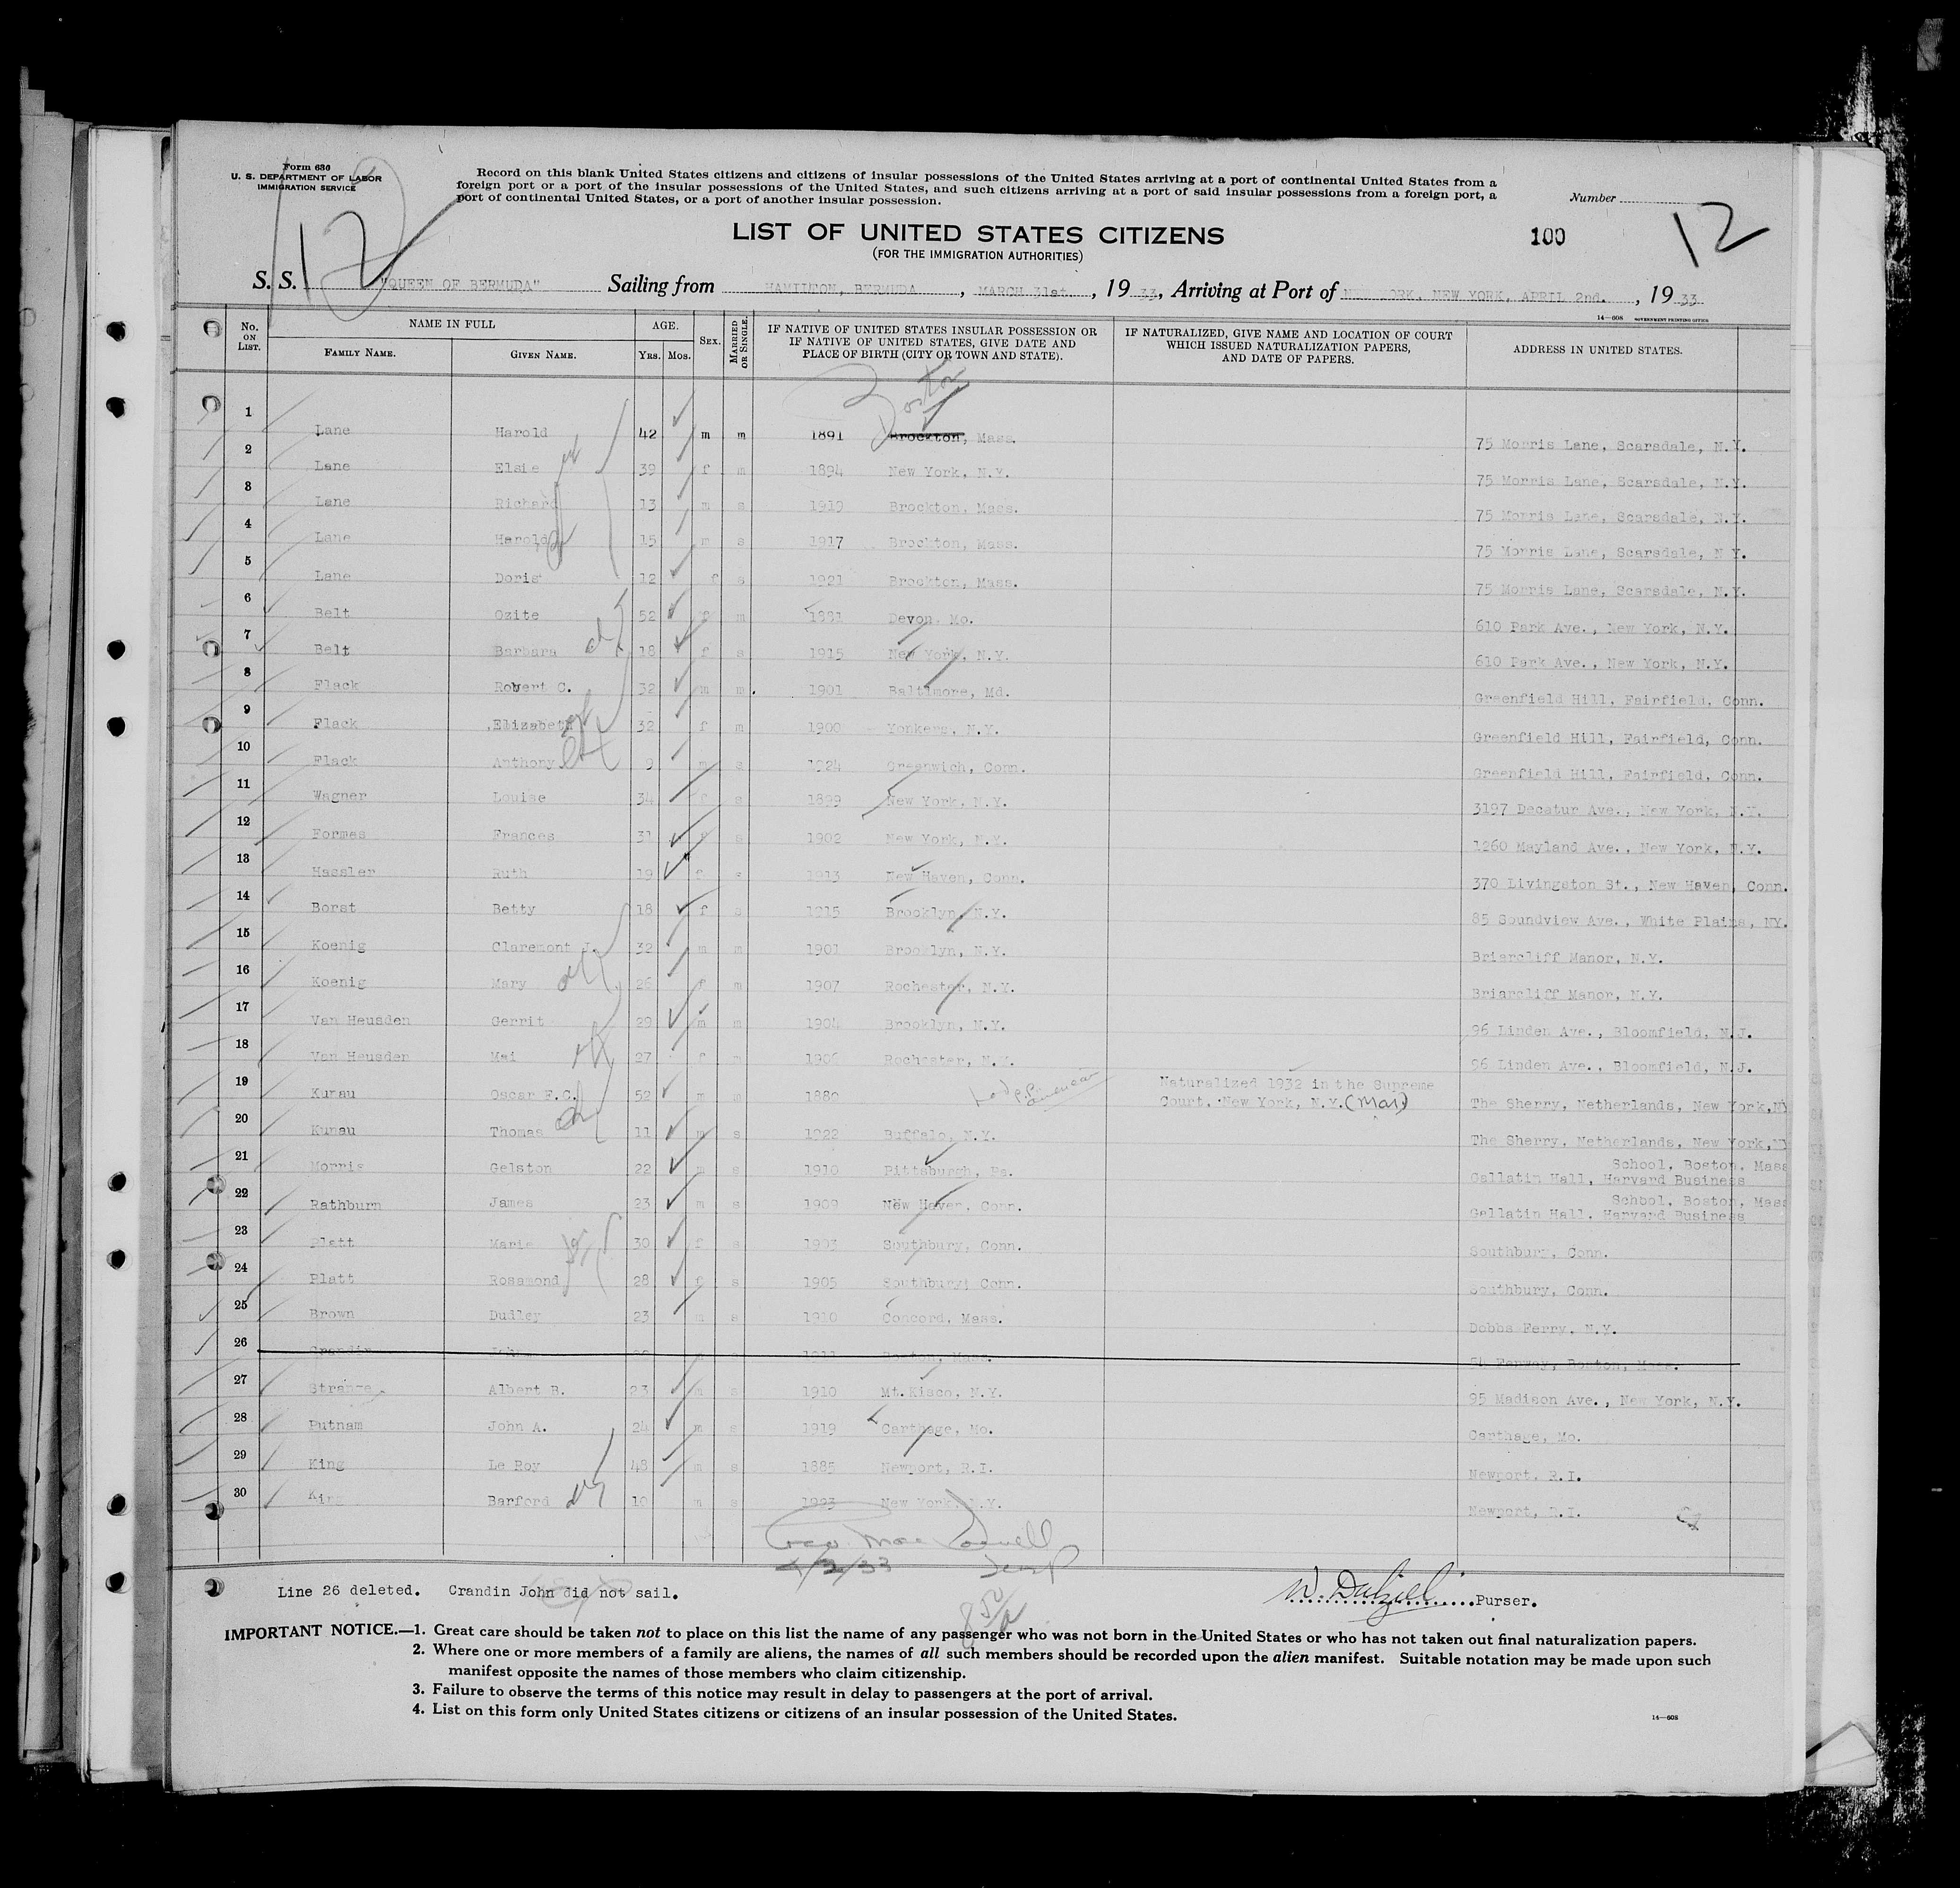 Form 630
U. S. DEPARTMENT OF LABOR
IMMIGRATION SERVICE
Record on this blank United States citizens and citizens of insular possessions of the United States arriving at a port of continental United States from a
foreign port or a port of the insular possessions of the United States, and such citizens arriving at a port of said insular possessions from a foreign port, a
port of continental United States, or a port of another insular possession.
Number
12
12
100
LIST OF UNITED STATES CITIZENS
(FOR THE IMMIGRATION AUTHORITIES)
S. S. "QUEEN OF BERMUDA" Sailing from HAMILTON, BERMUDA, MARCH 31st, 1933, Arriving at Port of NEW YORK, NEW YORK, APRIL 2nd., 1933
14—608 GOVERNMENT PRINTING OFFICE
No. ON LIST. NAME IN FULL FAMILY NAME. GIVEN NAME. AGE. YRS. MOS. SEX. MARRIED OR SINGLE. IF NATIVE OF UNITED STATES INSULAR POSSESSION OR IF NATIVE OF UNITED STATES, GIVE DATE AND PLACE OF BIRTH (CITY OR TOWN AND STATE). IF NATURALIZED, GIVE NAME AND LOCATION OF COURT WHICH ISSUED NATURALIZATION PAPERS, AND DATE OF PAPERS. ADDRESS IN UNITED STATES.
Boston
1 Lane Harold 42 m m 1891 Brockton, Mass. 75 Morris Lane, Scarsdale, N.Y.
2 Lane Elsie 39 f m 1894 New York, N.Y. 75 Morris Lane, Scarsdale, N.Y.
3 Lane Richard 13 m s 1919 Brockton, Mass. 75 Morris Lane, Scarsdale, N.Y.
4 Lane Harold 15 m s 1917 Brockton, Mass. 75 Morris Lane, Scarsdale, N.Y.
5 Lane Doris 12 f s 1921 Brockton, Mass. 75 Morris Lane, Scarsdale, N.Y.
6 Belt Ozite 52 f m 1881 Devon, Mo. 610 Park Ave., New York, N.Y.
7 Belt Barbara 18 f s 1915 New York, N.Y. 610 Park Ave., New York, N.Y.
8 Flack Robert C. 32 m m. 1901 Baltimore, Md. Greenfield Hill, Fairfield, Conn.
9 Flack Elizabeth 32 f m 1900 Yonkers, N.Y. Greenfield Hill, Fairfield, Conn.
10 Flack Anthony 9 m s 1924 Greenwich, Conn. Greenfield Hill, Fairfield, Conn.
11 Wagner Louise 34 f s 1899 New York, N.Y. 3197 Decatur Ave., New York, N.Y.
12 Formes Frances 31 f s 1902 New York, N.Y. 1260 Mayland Ave., New York, N.Y.
13 Hassler Ruth 19 f s 1913 New Haven, Conn. 370 Livingston St., New Haven, Conn.
14 Borst Betty 18 f s 1915 Brooklyn, N.Y. 85 Soundview Ave., White Plains, NY.
15 Koenig Claremont J. 32 m m 1901 Brooklyn, N.Y. Briarcliff Manor, N.Y.
16 Koenig Mary 26 f m 1907 Rochester, N.Y. Briarcliff Manor, N.Y.
17 Van Heusden Gerrit 29 m m 1904 Brooklyn, N.Y. 96 Linden Ave., Bloomfield, N.J.
18 Van Heusden Mai 27 f m 1906 Rochester, N.Y. 96 Linden Ave., Bloomfield, N.J.
19 Kunau Oscar F.C. 52 m m 1880 Naturalized 1932 in the Supreme Court, New York, N.Y. (Mar) The Sherry, Netherlands, New York, NY
20 Kunau Thomas 11 m s 1922 Buffalo, N.Y. The Sherry, Netherlands, New York, NY
21 Morris Gelston 22 m s 1910 Pittsburgh, Pa. Gallatin Hall, Harvard Business School, Boston, Mass
22 Rathburn James 23 m s 1909 New Haven, Conn. Gallatin Hall, Harvard Business School, Boston, Mass
23 Platt Marie 30 f s 1903 Southbury, Conn. Southbury, Conn.
24 Platt Rosamond 28 f s 1905 Southbury, Conn. Southbury, Conn.
25 Brown Dudley 23 m s 1910 Concord, Mass. Dobbs Ferry, N.Y.
26 Crandin John m s 1911 Boston, Mass. Fenway, Boston, Mass.
27 Strange Albert B. 23 m s 1910 Mt.Kisco, N.Y. 95 Madison Ave., New York, N.Y.
28 Putnam John A. 24 m s 1919 Carthage, Mo. Carthage, Mo.
29 King Le Roy 48 m s 1885 Newport, R.I. Newport, R.I.
30 King Barford 10 m s 1923 New York, N.Y. Newport, R.I.
4/2/33
Line 26 deleted. Crandin John did not sail.
W. Dalziel Purser.
IMPORTANT NOTICE.—1. Great care should be taken not to place on this list the name of any passenger who was not born in the United States or who has not taken out final naturalization papers.
2. Where one or more members of a family are aliens, the names of all such members should be recorded upon the alien manifest. Suitable notation may be made upon such
manifest opposite the names of those members who claim citizenship.
3. Failure to observe the terms of this notice may result in delay to passengers at the port of arrival.
4. List on this form only United States citizens or citizens of an insular possession of the United States.
14—608